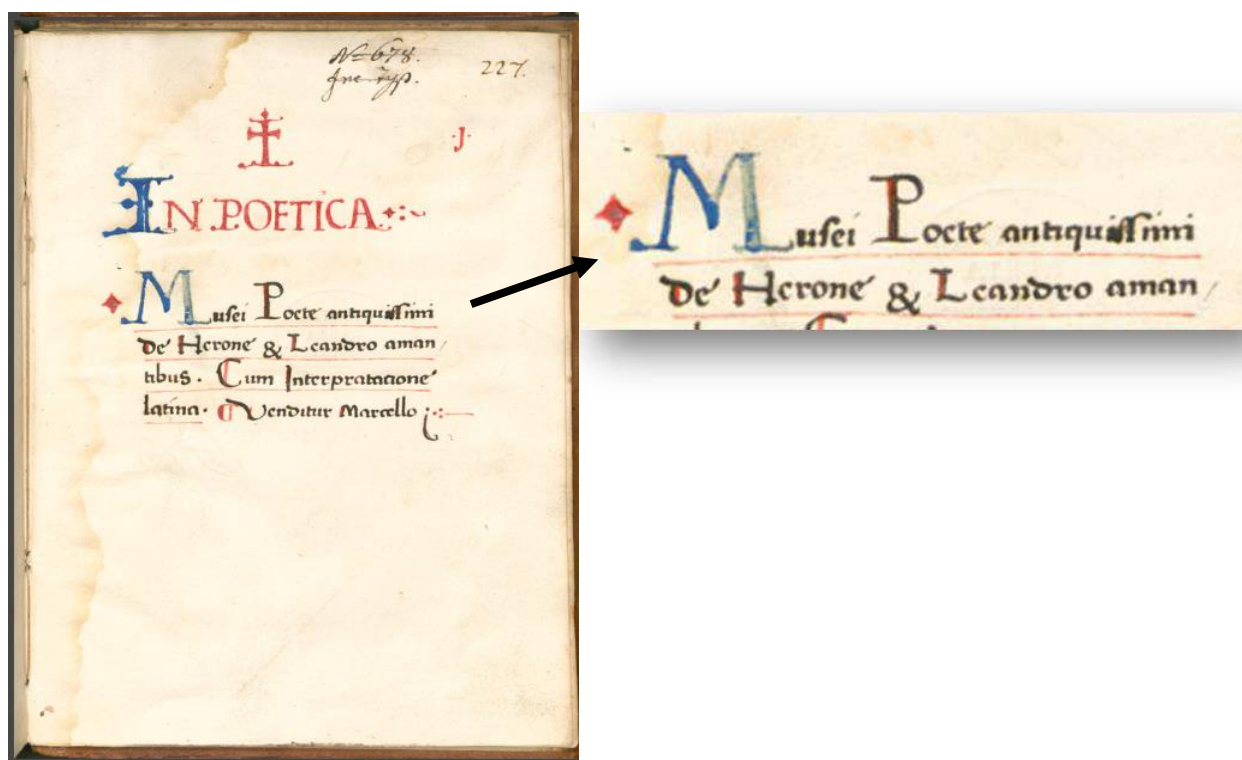 No 678.
227.
.J.
IN POETICA
Musei Poete antiquissimi
de Herone & Leandro aman
tibus. Cum Interpratatione
latina. Venditur Marcello
Musei Poete antiquissimi
de Herone & Leandro aman